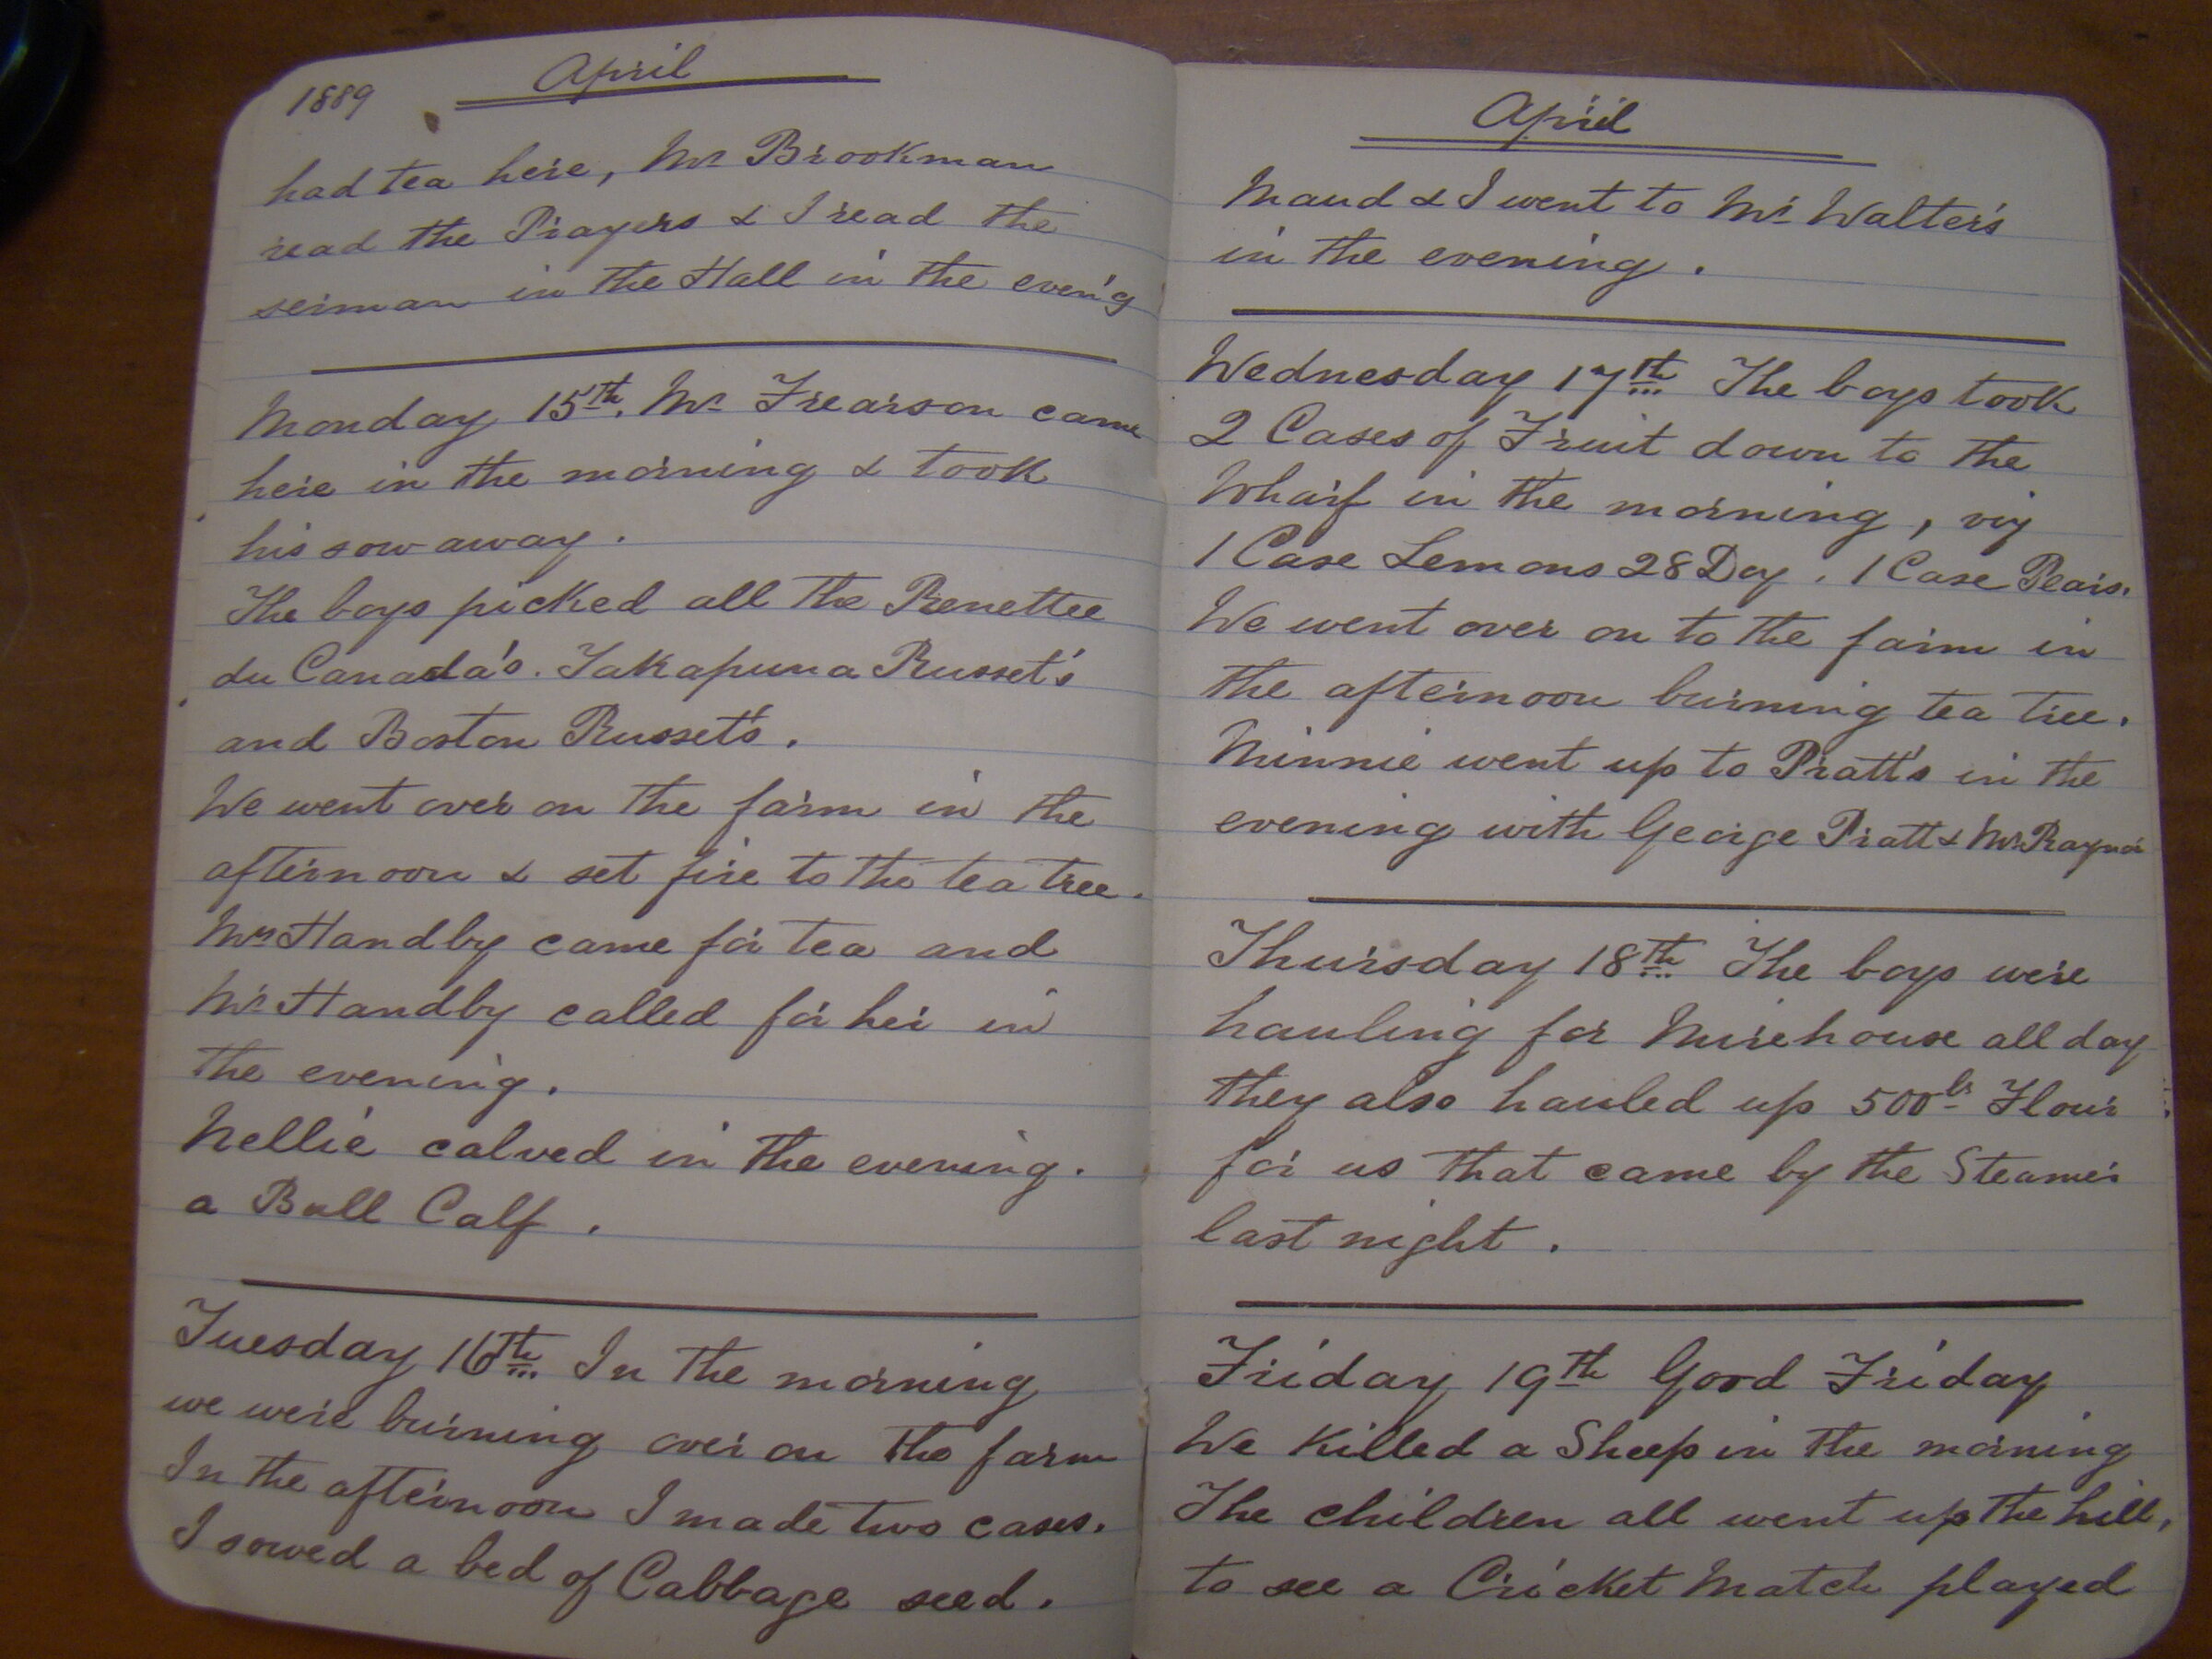 1889 April
had tea here, Mr Brookman
read the Prayers & I read the
serman in the Hall in the even'g
Monday 15th. Mr Frearson came
here in the morning & took
his sow away.
The boys picked all the Renettee
du Canada's. Takapuna Russet's
and Boston Russet's.
We went over on the farm in the
afternoon & set fire to the tea tree.
Mrs Handby came for tea and
Mr Handby called for her in
the evening.
Nellie calved in the evening.
a Bull Calf.
Tuesday 16th In the morning
we were burning over on the farm
In the afternoon I made two cases.
I sowed a bed of Cabbage seed.
April
Maud & I went to Mr Walter's
in the evening.
Wednesday 17th The boys took
2 Cases of Fruit down to the
Wharf in the morning, viz
1 Case Lemons 28 Doz. 1 Case Pears.
We went over on to the farm in
the afternoon burning tea tree.
Minnie went up to Pratt's in the
evening with George Pratt & Mr Raynor
Thursday 18th The boys were
hauling for Mirehouse all day
they also hauled up 500 lbs Flour
for us that came by the Steamer
last night.
Friday 19th Good Friday
We Killed a Sheep in the morning
The children all went up the hill,
to see a Cricket Match played